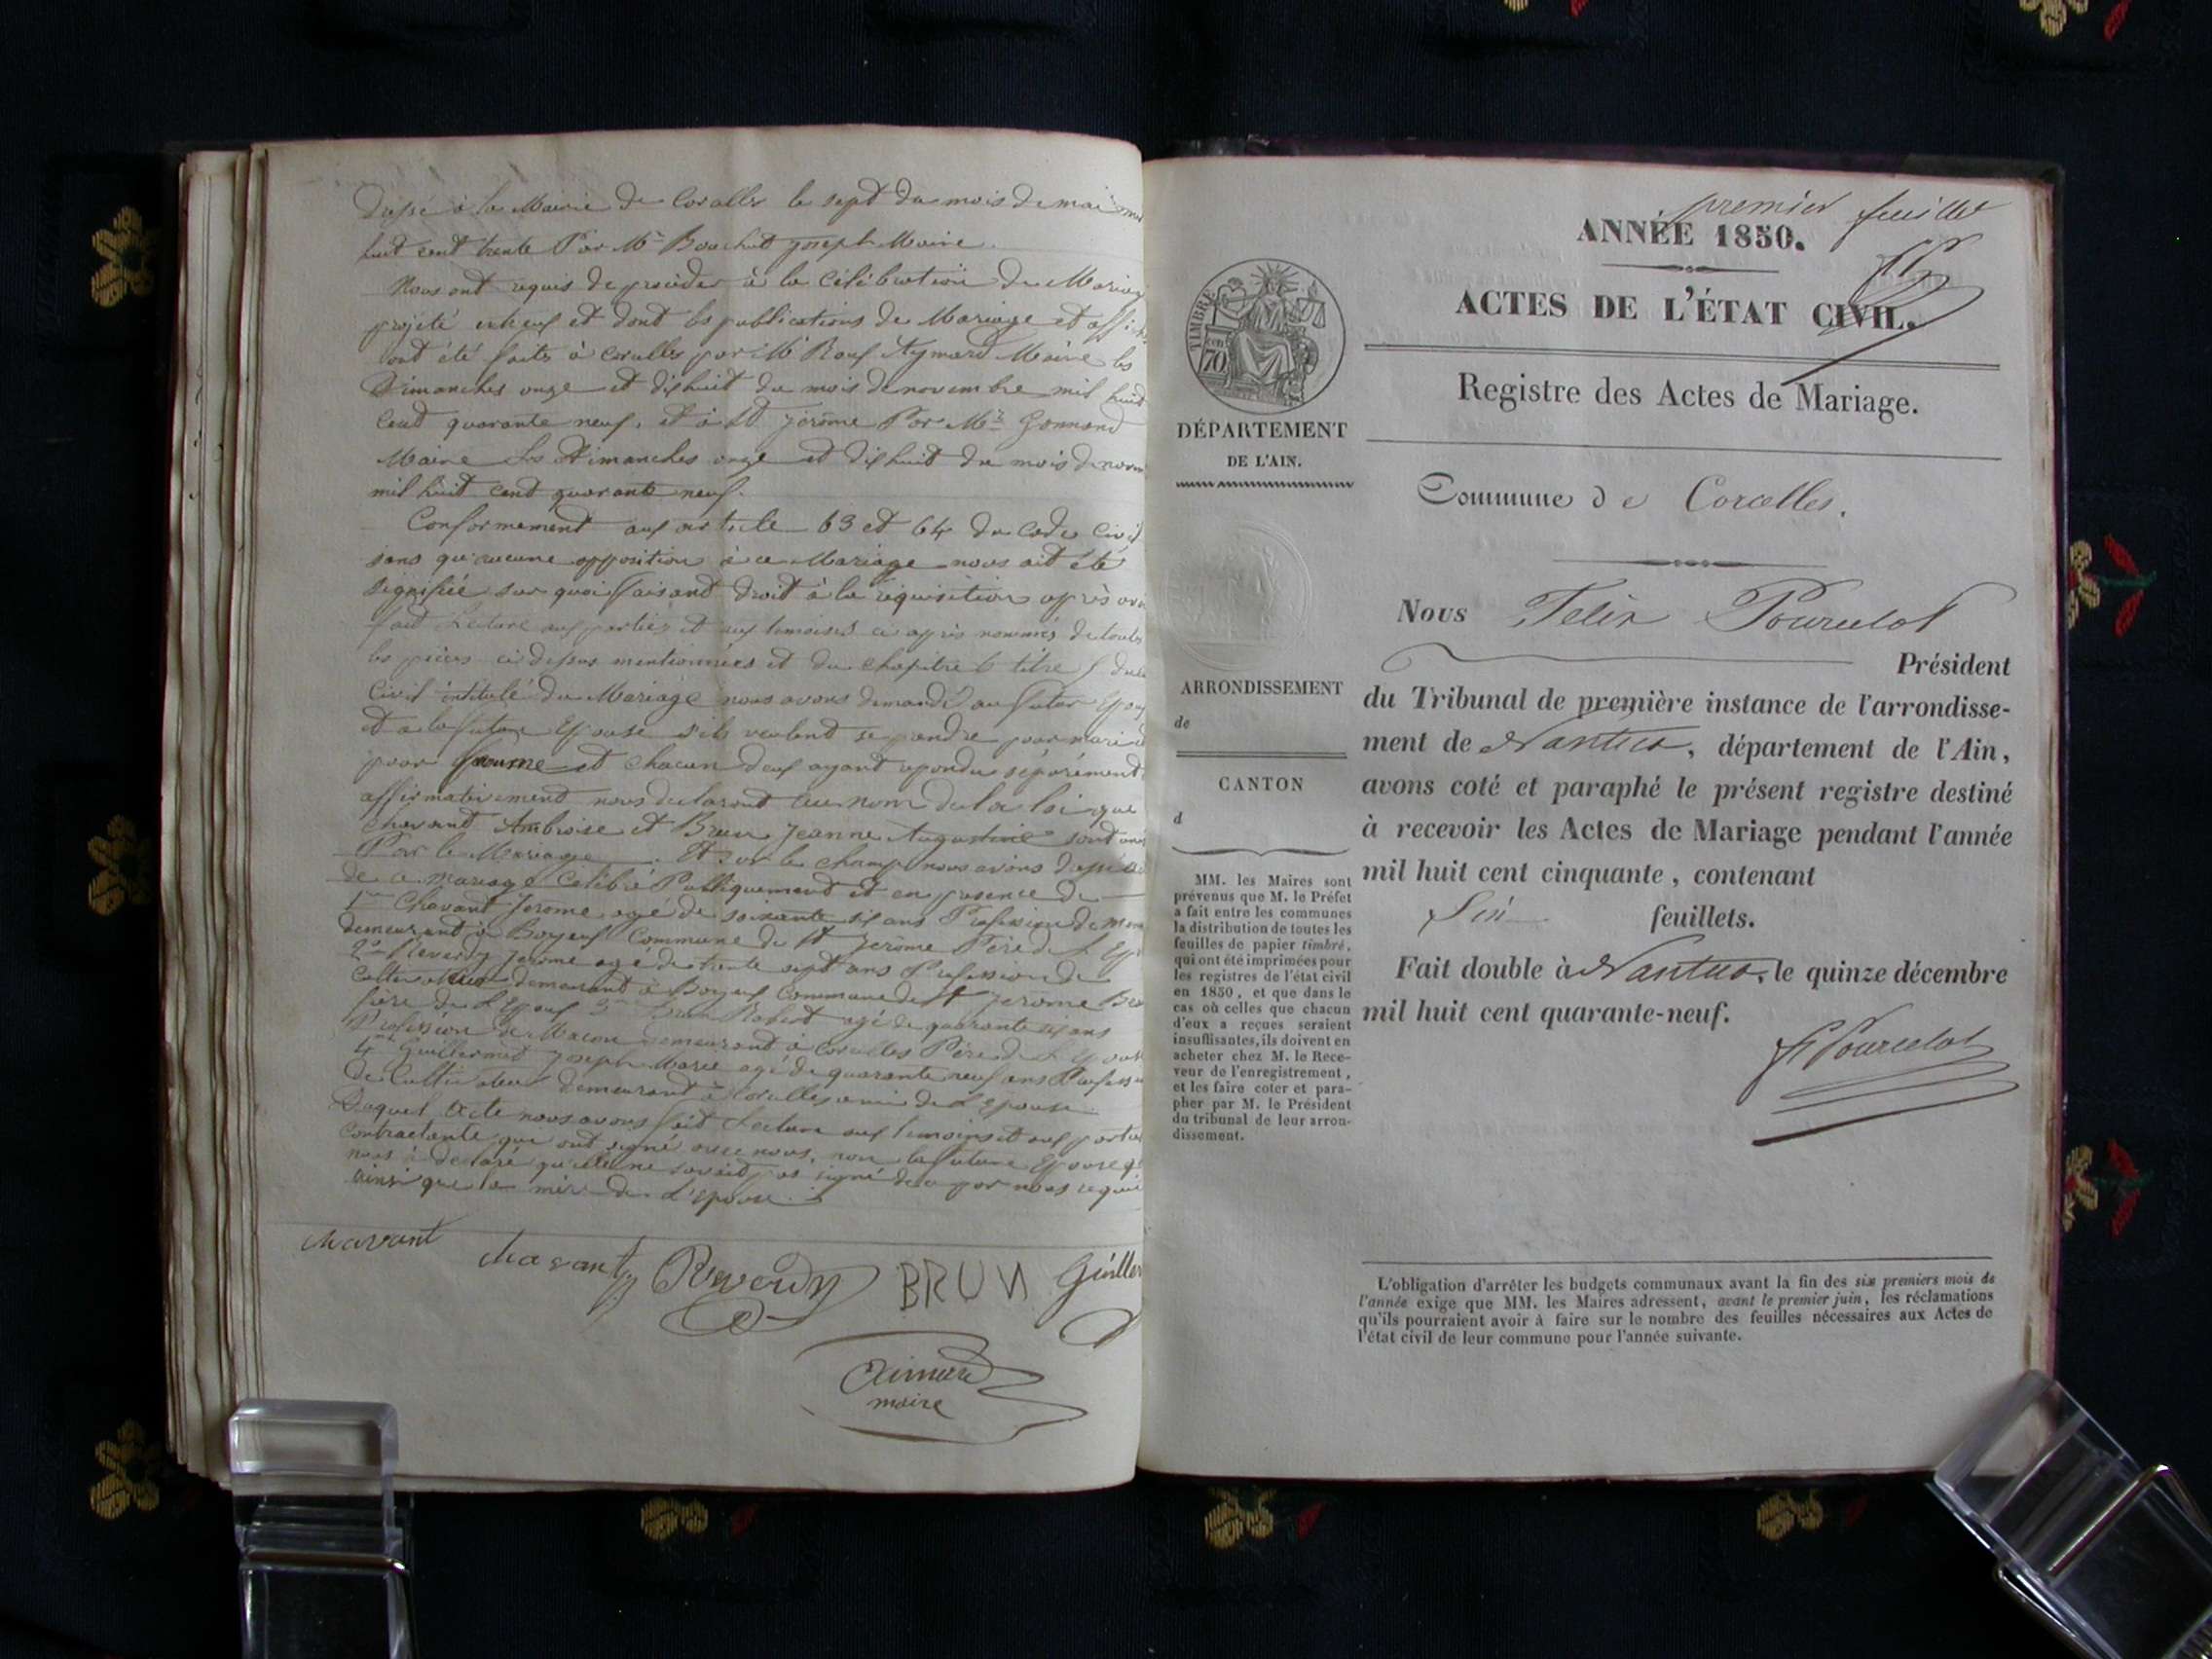 Dressé à la Mairie de Corcelles le sept du mois de mai mil
huit cent trente Par Mr Bouchut Joseph Maire.
Nous ont requis de procéder à la Célébration du Mariage
projeté entreux et dont les publications de Mariage et affiches
ont été faites à Corcelles par Mr Aymard Maire les
Dimanches onze et dishuit du mois de novembre mil huit
Cent quarante neuf, et à St Jerôme Par Mr Gonnand
Maire les Dimanches onze et dishuit du mois de novem
mil huit cent quarante neuf.
Conformement aux article 63 et 64 du Code Civil
sans qu'aucune opposition à ce Mariage nous ait été
signifiée sur quoi faisant droit à la réquisition après avoir
fait Lecture aux parties et aux temoins ci après nommés de toutes
les pièces ci dessus mentionnées et du chapitre 6 titre 5 du
Civil intitulé du Mariage nous avons demandé au futur Epoux
et a la future Epouse s'ils veulent se prendre pour mari et
pour femme et chacun deux ayant repondu séparément
affirmativement nous declaront au nom de la loi que
Chavant Ambroise et Brun Jeanne Augustine sont unis
Par le Mariage. Et sur le champ nous avons dressé acte
de ce mariage Célébré Publiquement et en presence de
1er Chavant Jerome agé de soixante six ans Profession de
demeurant à Boyeux Commune de St Jerôme Père de L'Epoux
2e Reverdy Jerome agé de trente sept ans Profession de
Cultivateur demeurant à Boyeux Commune de St Jerome Beau
frère de L'Epoux 3me Brun Robert agé de quarante six ans
Profession de Macon demeurant à Corcelles Père de L'Epouse
4me Guillermet Joseph Marie agé de quarante neuf ans Profession
de Cultivateur demeurant à Corcelles ami de L'Epouse
Duquel Acte nous avons fait Lecture aux temoins et aux parties
contractante qui ont signé avec nous, non la future Epouse qui
nous à declaré qu'elle ne savait pas signé de ce par nous requis
ainsi que la mère de L'Epouse.
chavant
chavant
Reverdy
BRUN
Guiller
Aimard
maire
premier feuillet
ANNÉE 1850.
TIMBRE
70
ACTES DE L'ÉTAT CIVIL.
Registre des Actes de Mariage.
DÉPARTEMENT
DE L'AIN.
Commune de Corcelles.
Nous Felix Pourcelot
Président
ARRONDISSEMENT
de
du Tribunal de première instance de l'arrondisse-
ment de Nantua, département de l'Ain,
avons coté et paraphé le présent registre destiné
à recevoir les Actes de Mariage pendant l'année
mil huit cent cinquante, contenant
Six feuillets.
Fait double à Nantua, le quinze décembre
mil huit cent quarante-neuf.
F Pourcelot
CANTON
d
MM. les Maires sont
prévenus que M. le Préfet
a fait entre les communes
la distribution de toutes les
feuilles de papier timbré,
qui ont été imprimées pour
les registres de l'état civil
en 1850, et que dans le
cas où celles que chacun
d'eux a reçues seraient
insuffisantes, ils doivent en
acheter chez M. le Rece-
veur de l'enregistrement,
et les faire coter et para-
pher par M. le Président
du tribunal de leur arron-
dissement.
L'obligation d'arrêter les budgets communaux avant la fin des six premiers mois de
l'année exige que MM. les Maires adressent, avant le premier juin, les réclamations
qu'ils pourraient avoir à faire sur le nombre des feuilles nécessaires aux Actes de
l'état civil de leur commune pour l'année suivante.